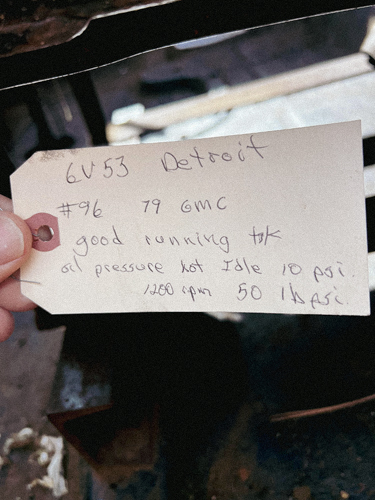 6V53 Detroit
#96 79 GMC
good running trk
oil pressure hot Idle 10 psi.
1200 rpm 50 lb psi.